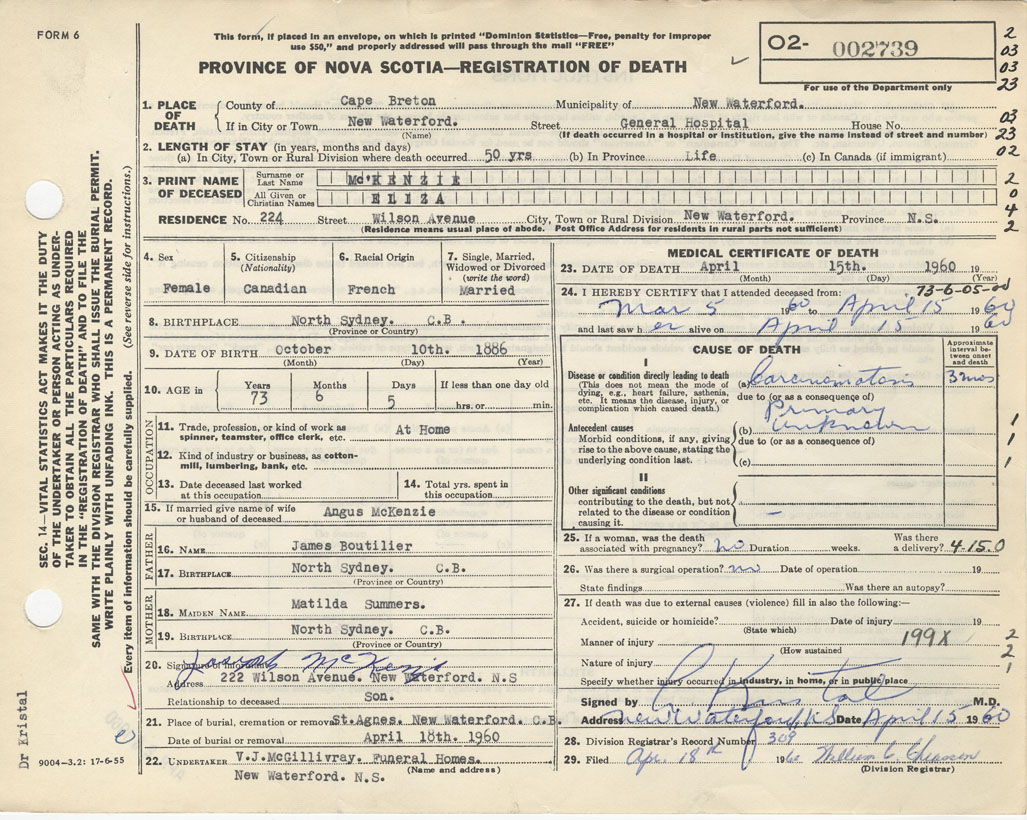 FORM 6
This form, if placed in an envelope, on which is printed "Dominion Statistics—Free, penalty for improper
use $50," and properly addressed will pass through the mail "FREE"
PROVINCE OF NOVA SCOTIA—REGISTRATION OF DEATH
O2- 002739
For use of the Department only
2
03
03
23
1. PLACE OF DEATH
County of Cape Breton Municipality of New Waterford.
If in City or Town New Waterford. Street General Hospital House No.
(Name) (If death occurred in a hospital or institution, give the name instead of street and number)
03
23
2. LENGTH OF STAY (in years, months and days)
(a) In City, Town or Rural Division where death occurred 50 yrs (b) In Province Life (c) In Canada (if immigrant)
02
3. PRINT NAME OF DECEASED
Surname or Last Name Mc'KENZIE
All Given or Christian Names ELIZA
2
0
4
2
RESIDENCE No. 224 Street Wilson Avenue City, Town or Rural Division New Waterford. Province N.S.
(Residence means usual place of abode. Post Office Address for residents in rural parts not sufficient)
4. Sex
Female
5. Citizenship (Nationality)
Canadian
6. Racial Origin
French
7. Single, Married, Widowed or Divorced (write the word)
Married
8. BIRTHPLACE North Sydney. C.B.
(Province or Country)
9. DATE OF BIRTH October 10th. 1886
(Month) (Day) (Year)
10. AGE in Years Months Days If less than one day old
73 6 5 hrs. or min.
OCCUPATION
11. Trade, profession, or kind of work as spinner, teamster, office clerk, etc. At Home
12. Kind of industry or business, as cotton-mill, lumbering, bank, etc.
13. Date deceased last worked at this occupation
14. Total yrs. spent in this occupation
15. If married give name of wife or husband of deceased Angus McKenzie
FATHER
16. NAME James Boutilier
17. BIRTHPLACE North Sydney. C.B.
(Province or Country)
MOTHER
18. MAIDEN NAME Matilda Summers.
19. BIRTHPLACE North Sydney. C.B.
(Province or Country)
20. Signature of informant
Address 222 Wilson Avenue. New Waterford. N.S
Relationship to deceased Son.
21. Place of burial, cremation or removal St.Agnes. New Waterford. C.B.
Date of burial or removal April 18th. 1960
22. UNDERTAKER V.J.McGillivray. Funeral Homes.
(Name and address)
New Waterford. N.S.
MEDICAL CERTIFICATE OF DEATH
23. DATE OF DEATH April 15th. 1960 19
(Month) (Day) (Year)
24. I HEREBY CERTIFY that I attended deceased from: 73-6-05-00
Mar 5 60 to April 15 1960
and last saw her alive on April 15 1960
CAUSE OF DEATH
Approximate interval between onset and death
I
Disease or condition directly leading to death
(This does not mean the mode of dying, e.g., heart failure, asthenia, etc. It means the disease, injury, or complication which caused death.)
(a) Carcinomatosis 3 mos
due to (or as a consequence of)
Primary
Antecedent causes
Morbid conditions, if any, giving rise to the above cause, stating the underlying condition last.
(b) unknown
due to (or as a consequence of)
(c)
1
1
1
II
Other significant conditions
contributing to the death, but not related to the disease or condition causing it.
25. If a woman, was the death associated with pregnancy? no Duration weeks. Was there a delivery? 4-15.0
26. Was there a surgical operation? no Date of operation 19
State findings Was there an autopsy?
27. If death was due to external causes (violence) fill in also the following:—
Accident, suicide or homicide? Date of injury 19
(State which)
Manner of injury 199X
(How sustained)
Nature of injury
2
2
1
Specify whether injury occurred in industry, in home, or in public place
Signed by M.D.
Address New Waterford N.S Date April 15 1960
28. Division Registrar's Record Number 309
29. Filed Apr. 18th 1960
(Division Registrar)
SEC. 14—VITAL STATISTICS ACT MAKES IT THE DUTY
OF THE UNDERTAKER OR PERSON ACTING AS UNDER-
TAKER TO OBTAIN ALL THE PARTICULARS REQUIRED
IN THE "REGISTRATION OF DEATH" AND TO FILE THE
SAME WITH THE DIVISION REGISTRAR WHO SHALL ISSUE THE BURIAL PERMIT.
WRITE PLAINLY WITH UNFADING INK. THIS IS A PERMANENT RECORD.
Every item of information should be carefully supplied. (See reverse side for instructions.)
Dr Kristal
9004-3.2: 17-6-55